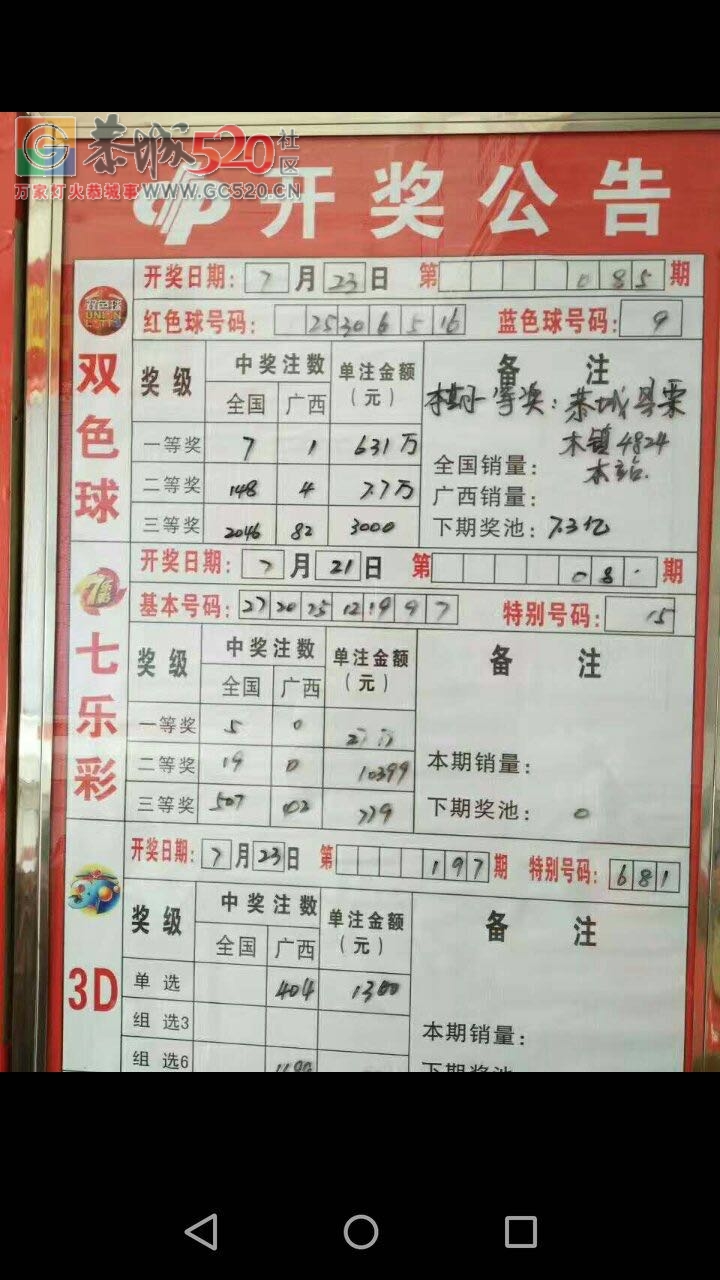 恭城520社区
万家灯火恭城事 WWW.GC520.CN
开奖公告
双色球
开奖日期: 7月23日 第 085期
红色球号码: 25 30 6 5 16 蓝色球号码: 9
奖级 中奖注数 单注金额(元) 备注
全国 广西
一等奖 7 1 631万
二等奖 148 4 7.7万
三等奖 2046 82 3000
一等奖:恭城县栗
木镇4824
本站.
全国销量:
广西销量:
下期奖池: 7.3亿
七乐彩
开奖日期: 7月21日 第 08 期
基本号码: 27 20 25 12 19 9 7 特别号码: 15
奖级 中奖注数 单注金额(元) 备注
全国 广西
一等奖 5 0
二等奖 19 0 10399
三等奖 507 779
本期销量:
下期奖池: 0
3D
开奖日期: 7月23日 第 197期 特别号码: 681
奖级 中奖注数 单注金额(元) 备注
全国 广西
单选 404 1300
组选3
组选6
本期销量:
下期奖池